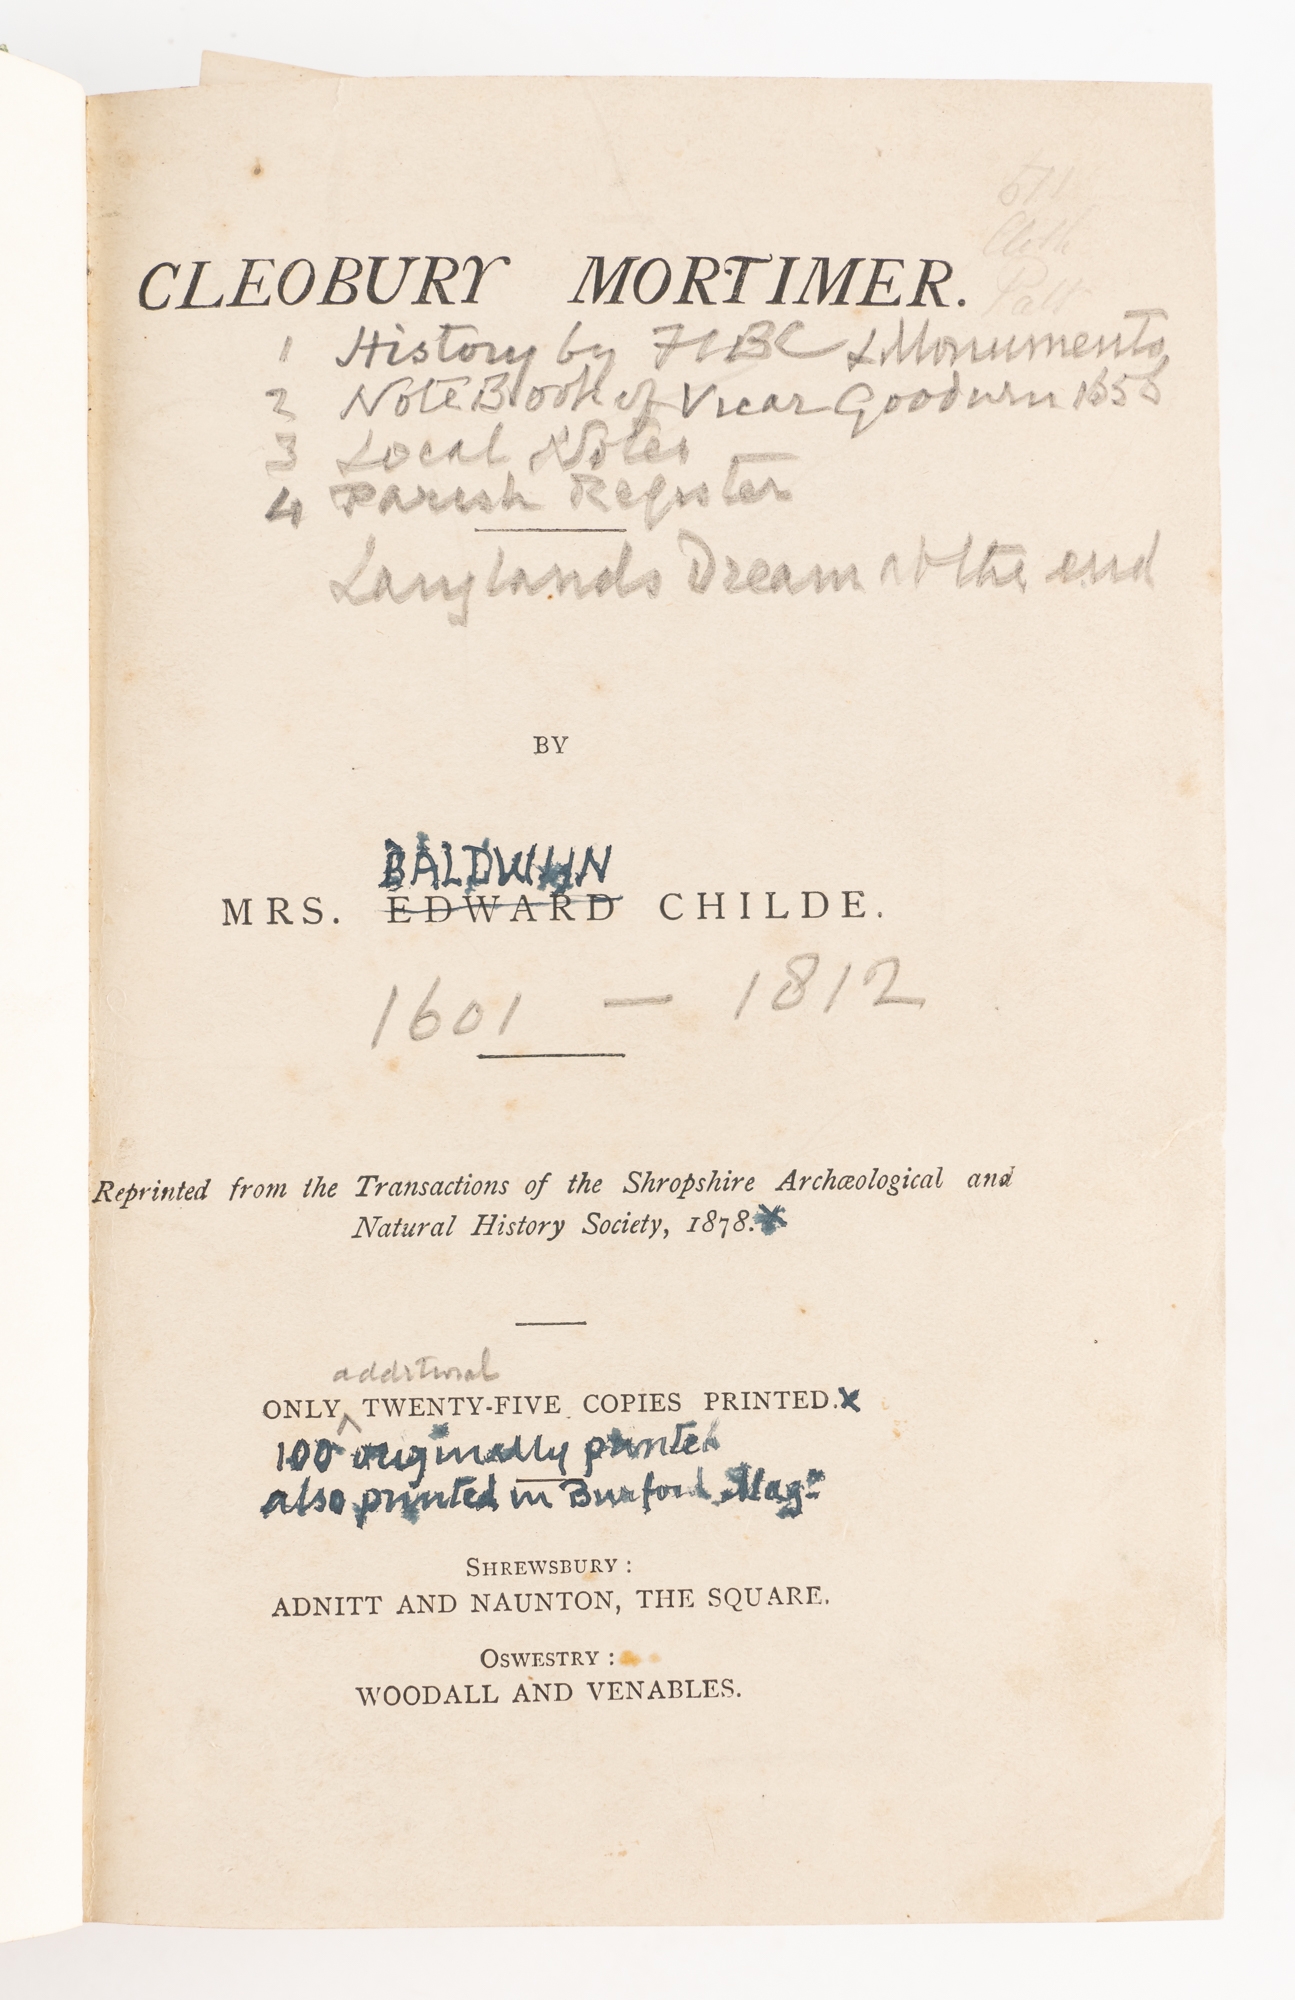 511
Cloth
CLEOBURY MORTIMER.
1 History by FHBC & Monuments
2 Note Book of Vicar Goodwin 1656
3 Local Notes
4 Parish Register
Langlands Dream at the end
BY
BALDWYN
MRS. EDWARD CHILDE.
1601 — 1812
Reprinted from the Transactions of the Shropshire Archæological and
Natural History Society, 1878.x
additional
ONLY ^ TWENTY-FIVE COPIES PRINTED.x
100 originally printed
also printed in Burford Magⁿ
SHREWSBURY :
ADNITT AND NAUNTON, THE SQUARE.
OSWESTRY :
WOODALL AND VENABLES.